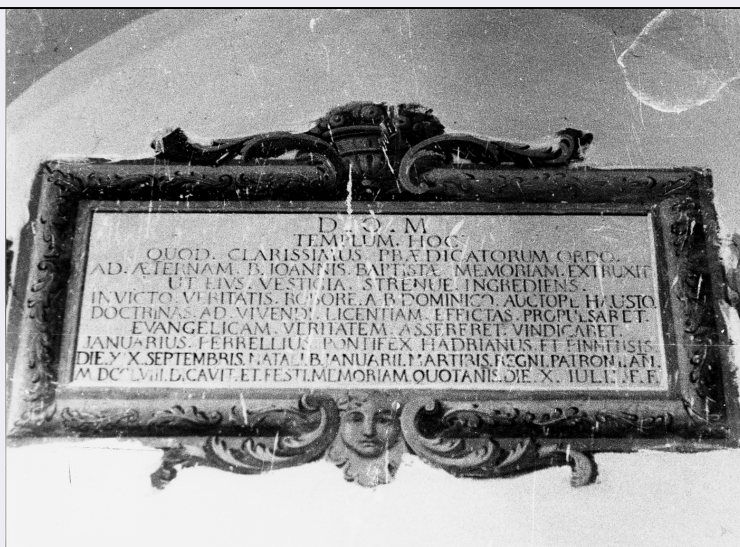 D. O. M
TEMPLUM. HOC
QUOD. CLARISSIMUS. PRÆDICATORUM ORDO.
AD. ÆTERNAM. B. IOANNIS. BAPTISTÆ MEMORIAM. EXTRUXIT
UT EIVS. VESTIGIA. STRENUE. INGREDIENS.
INVICTO. VERITATIS. ROBORE. A B DOMINICO. AUCTORE HAUSTO.
DOCTRINAS. AD. VIVENDI. LICENTIAM. EFFICTAS. PROPULSARET.
EVANGELICAM. VERITATEM. ASSERERET. VINDICARET.
JANUARIUS. PERRELLIUS. PONTIFEX HADRIANUS. ET
DIE. X X. SEPTEMBRIS. NATALI. B. JANUARII. MARTIRIS. REGNI. PATRONI. AN.
M DCCLVIII. D.CAVIT. ET. FESTI. MEMORIAM. QUOTANIS. DIE. X. IULII. F. F.